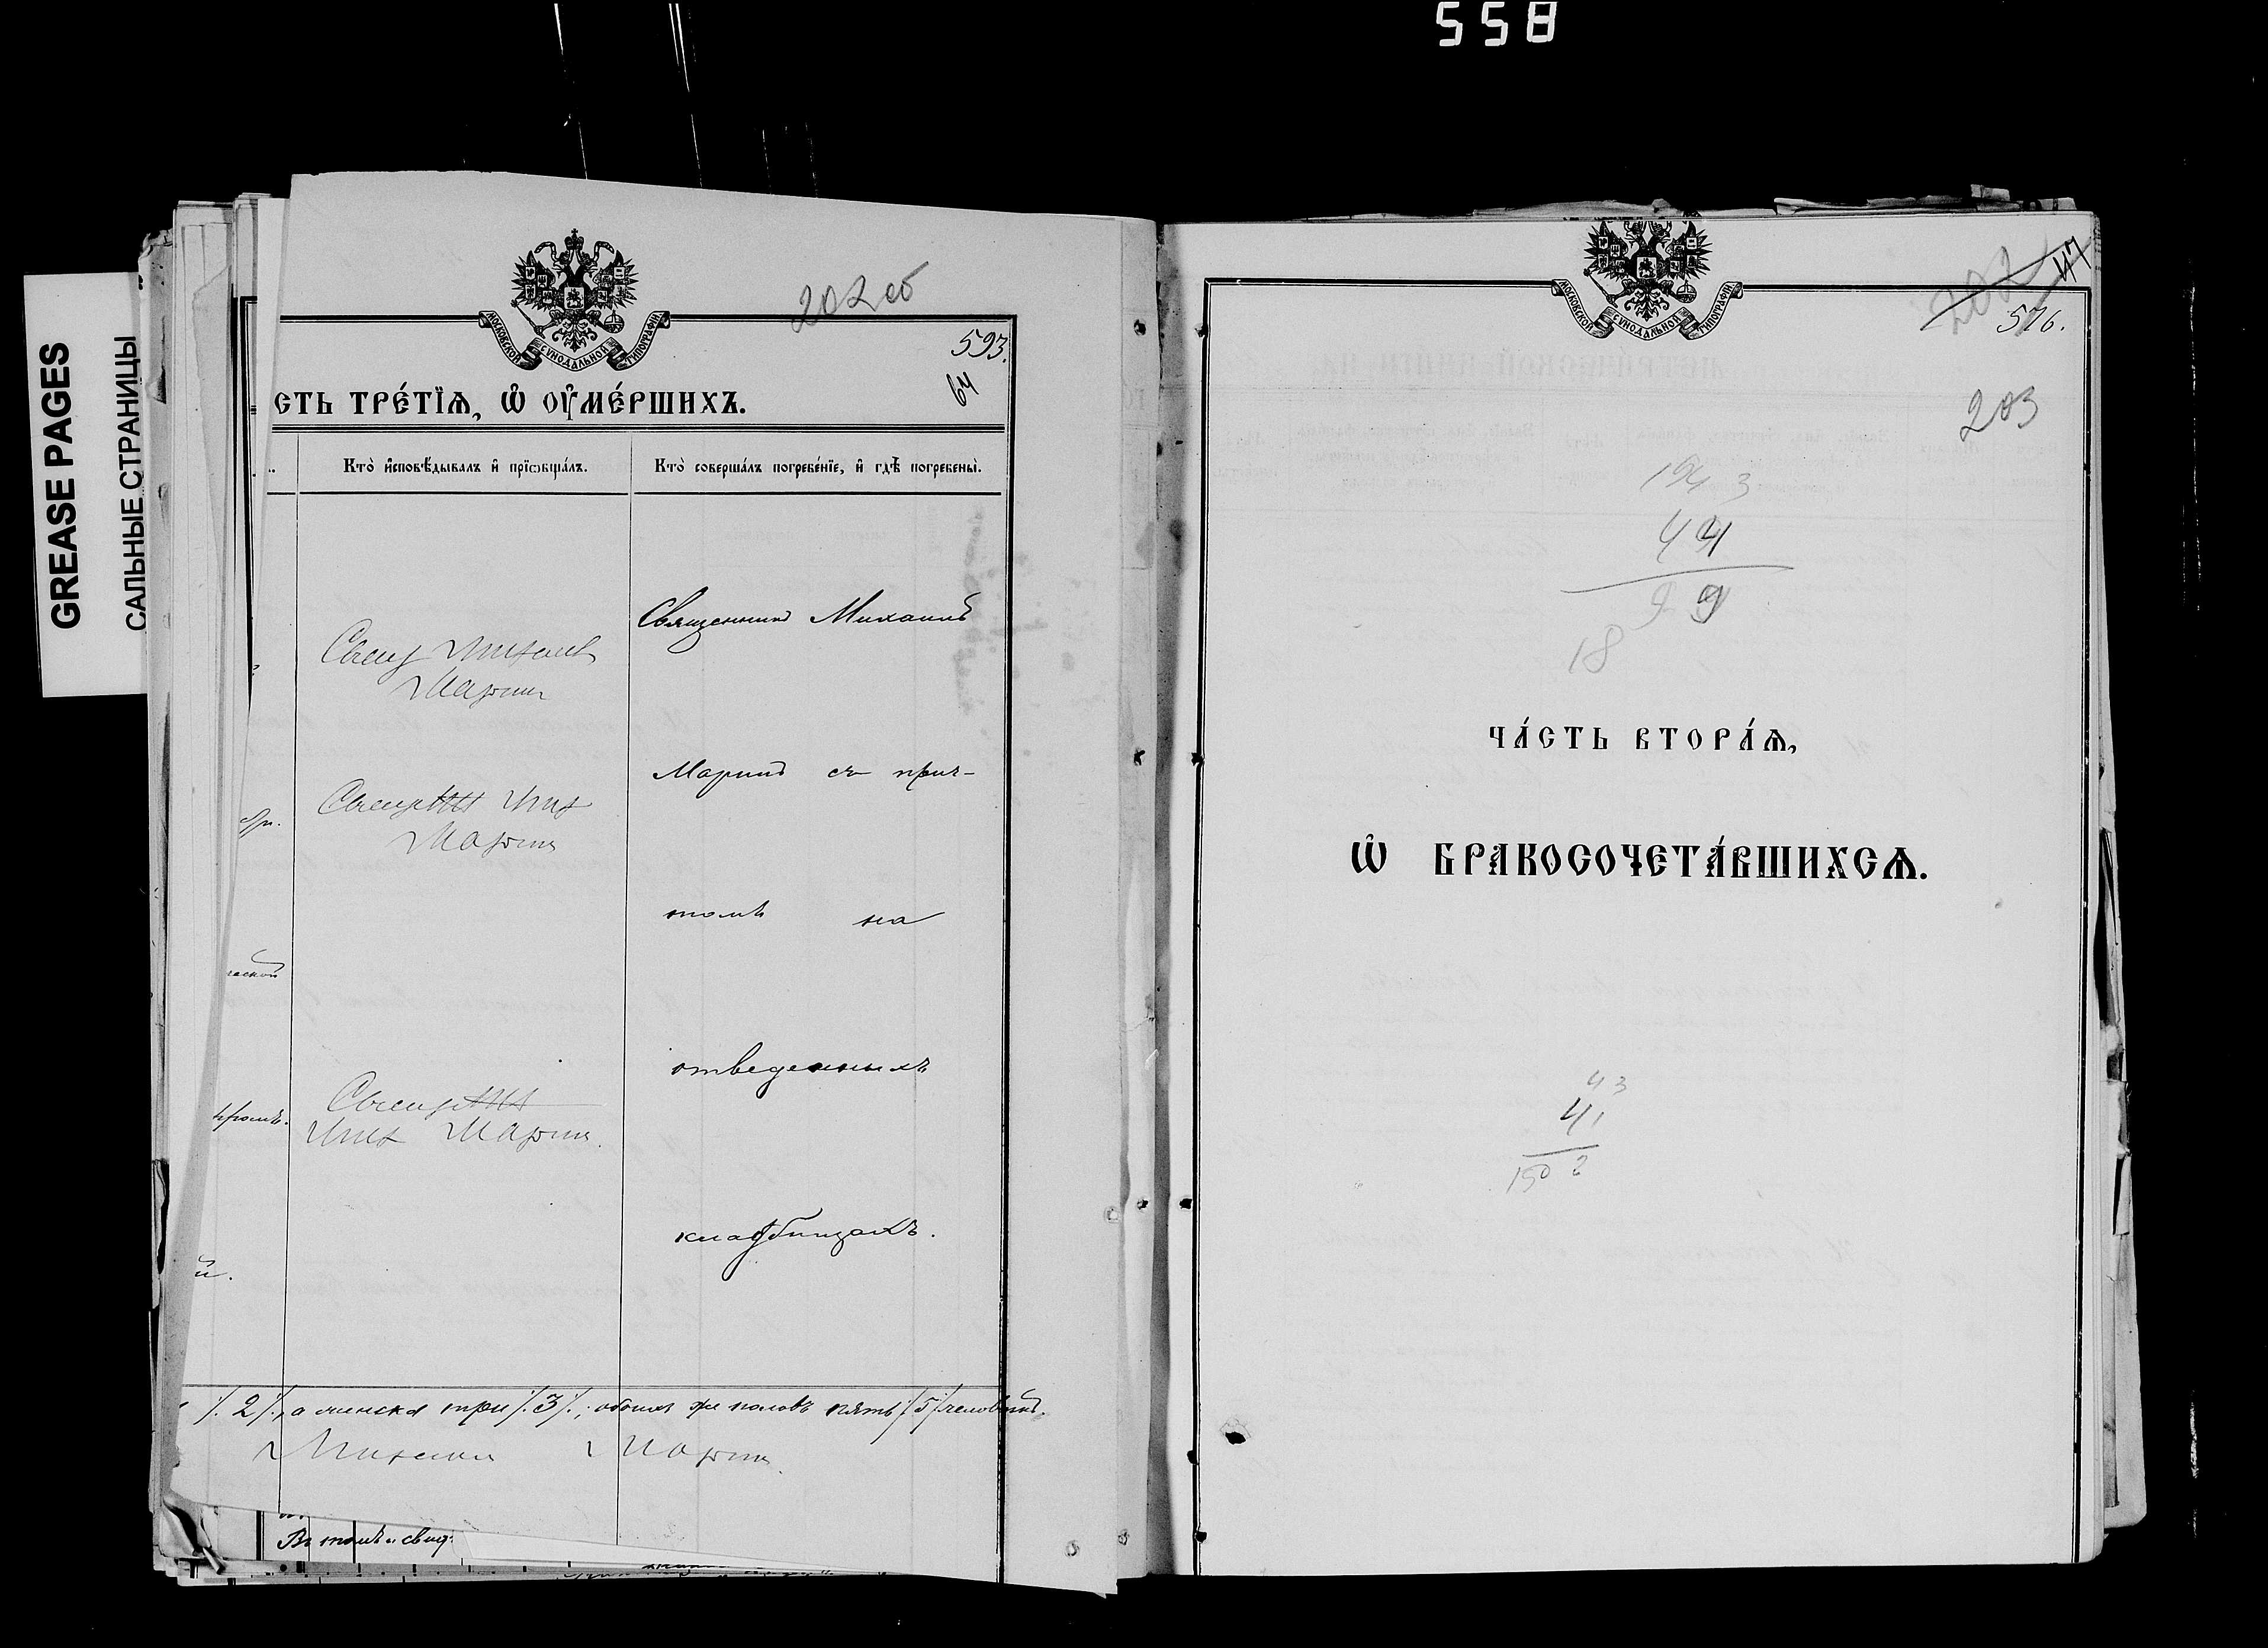 558
GREASE PAGES
САЛЬНЫЕ СТРАНИЦЫ
МОСКОВСКОЙ СѴНОДАЛЬНОЙ ТИПОГРАФІИ
202 об
593.
64
СТЬ ТРЕ́ТЇѦ, Ѡ҆ ОУ҆МЕ́РШИХЪ.
Кто̀ и҆сповѣ́дывалъ и҆ прїѡбща́лъ.
Кто̀ соверша́лъ погребе́нїе, и҆ гдѣ̀ погребены̀.
Священникъ Михаилъ
Свящ Михаилъ
Марин
Маринъ съ прич-
Мих
Марин
томъ на
ческой
отведенныхъ
Мих Марин.
кладбищахъ.
й.
/.2/., а женска три /.3/.; обоихъ же половъ пять /.5/ человѣкъ.
Михаил Марин
Въ томъ и свид:
МОСКОВСКОЙ СѴНОДАЛЬНОЙ ТИПОГРАФІИ
202
47
576.
203
194 3
44
99
18
ЧА́СТЬ ВТОРА́Ѧ,
Ѡ҆ БРАКОСОЧЕТА́ВШИХСѦ.
43
41
150 2